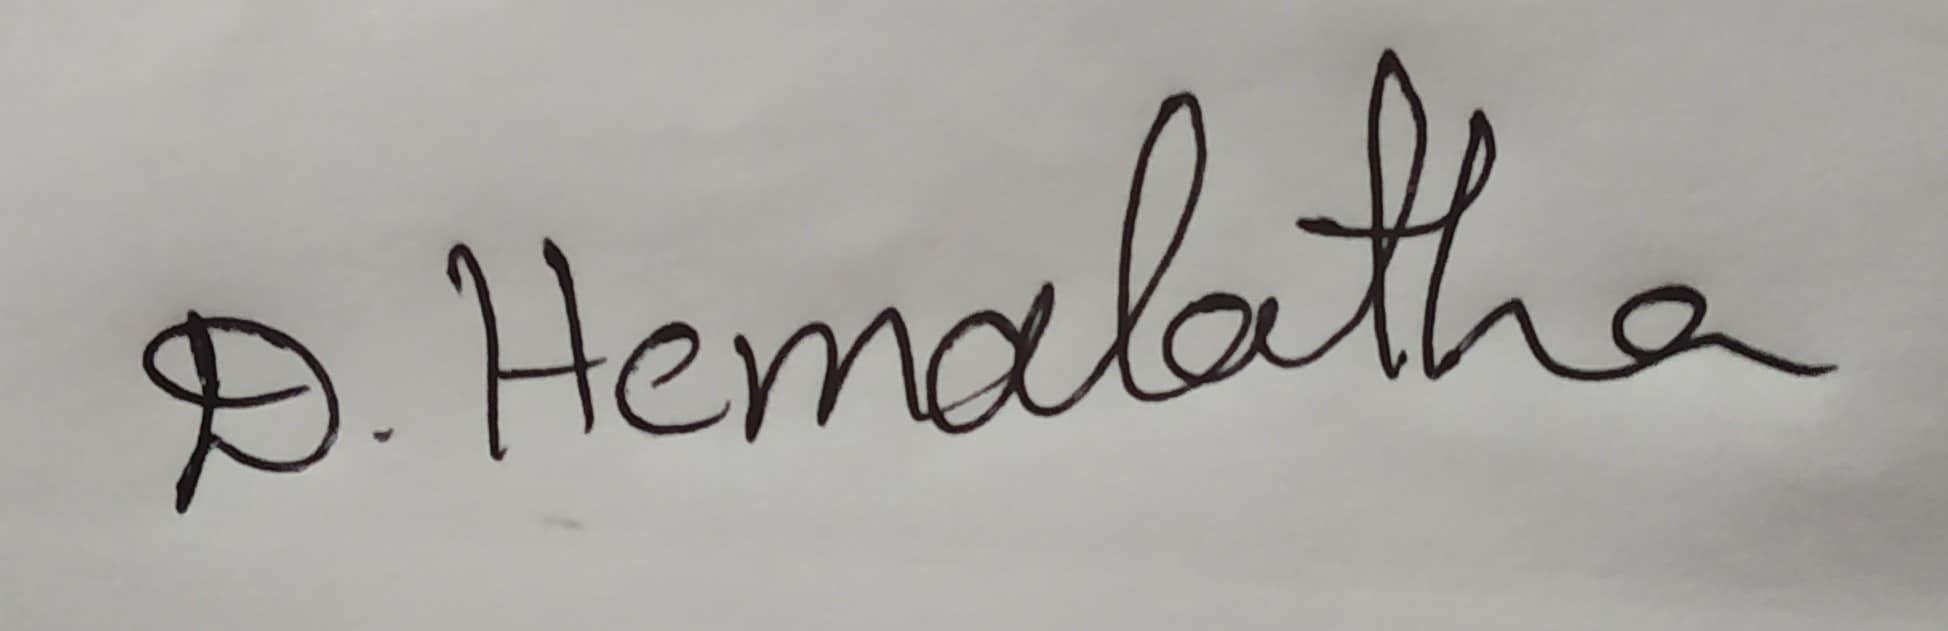 D. Hemalatha